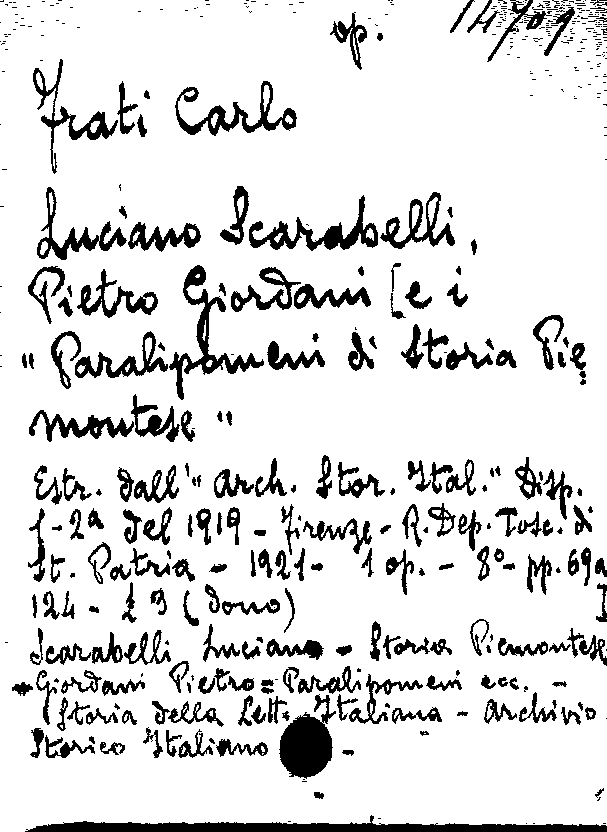 op. 14709
Frati Carlo
Luciano Scarabelli,
Pietro Giordani [e i
"Paralipomeni di Storia Pie
montese"
Estr. dall'"Arch. Stor. Ital." Disp.
1-2ª del 1919 - Firenze - R. Dep. Tosc. di
St. Patria - 1921 - 1 op. - 8º - pp. 69 a
124 - £ 3 (dono) ]
Scarabelli Luciano - Storia Piemontese
- Giordani Pietro = Paralipomeni ecc. -
(Storia della Lett. Italiana - Archivio
Storico Italiano -